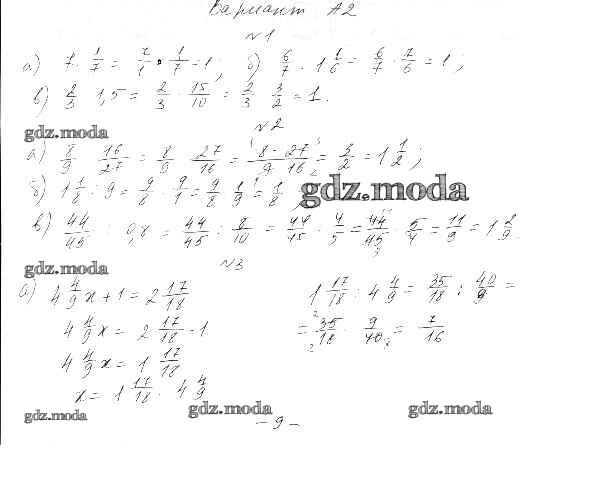 Вариант А2
№1
а) 7 · 1/7 = 7/1 · 1/7 = 1; б) 6/7 · 1 1/6 = 6/7 · 7/6 = 1;
в) 2/3 1,5 = 2/3 · 15/10 = 2/3 3/2 = 1.
gdz.moda
№2
а) 8/9 16/27 = 8/9 27/16 = 8 · 27/9 16 = 3/2 = 1 1/2;
б) 1 1/8 : 9 = 9/8 : 9/1 = 9/8 1/9 = 1/8
gdz.moda
в) 44/45 : 0,8 = 44/45 : 8/10 = 44/45 : 4/5 = 44/45 · 5/4 = 11/9 = 1 2/9.
gdz.moda
№3
а) 4 4/9 x + 1 = 2 17/18
1 17/18 : 4 4/9 = 35/18 : 40/9 =
4 4/9 x = 2 17/18 - 1
= 35/18 · 9/40 = 7/16
4 4/9 x = 1 17/18
x = 1 17/18 : 4 4/9
gdz.moda
gdz.moda
gdz.moda
- 9 -